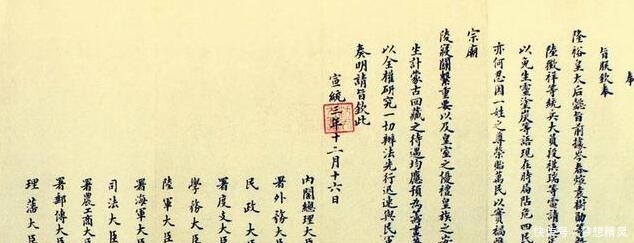 奉
旨朕欽奉
隆裕皇太后懿旨前據岑春煊袁樹勛
陸徵祥等統兵大員段祺瑞等電請
以免生靈塗炭等語現在時局阽危四民
亦何忍因一姓之尊榮貽萬民以實禍
宗廟
陵寢關繫重要以及皇室之優禮皇族之
生計蒙古回藏之待遇均應預為籌畫
以全權研究一切辦法先行迅速與民軍
奏明請旨欽此
宣統三年十二月十六日
內閣總理大臣
署外務大臣
民政大臣
署度支大臣
學務大臣
陸軍大臣
署海軍大臣
司法大臣
署農工商大臣
署郵傳大臣
理藩大臣
快传号/梦想精灵